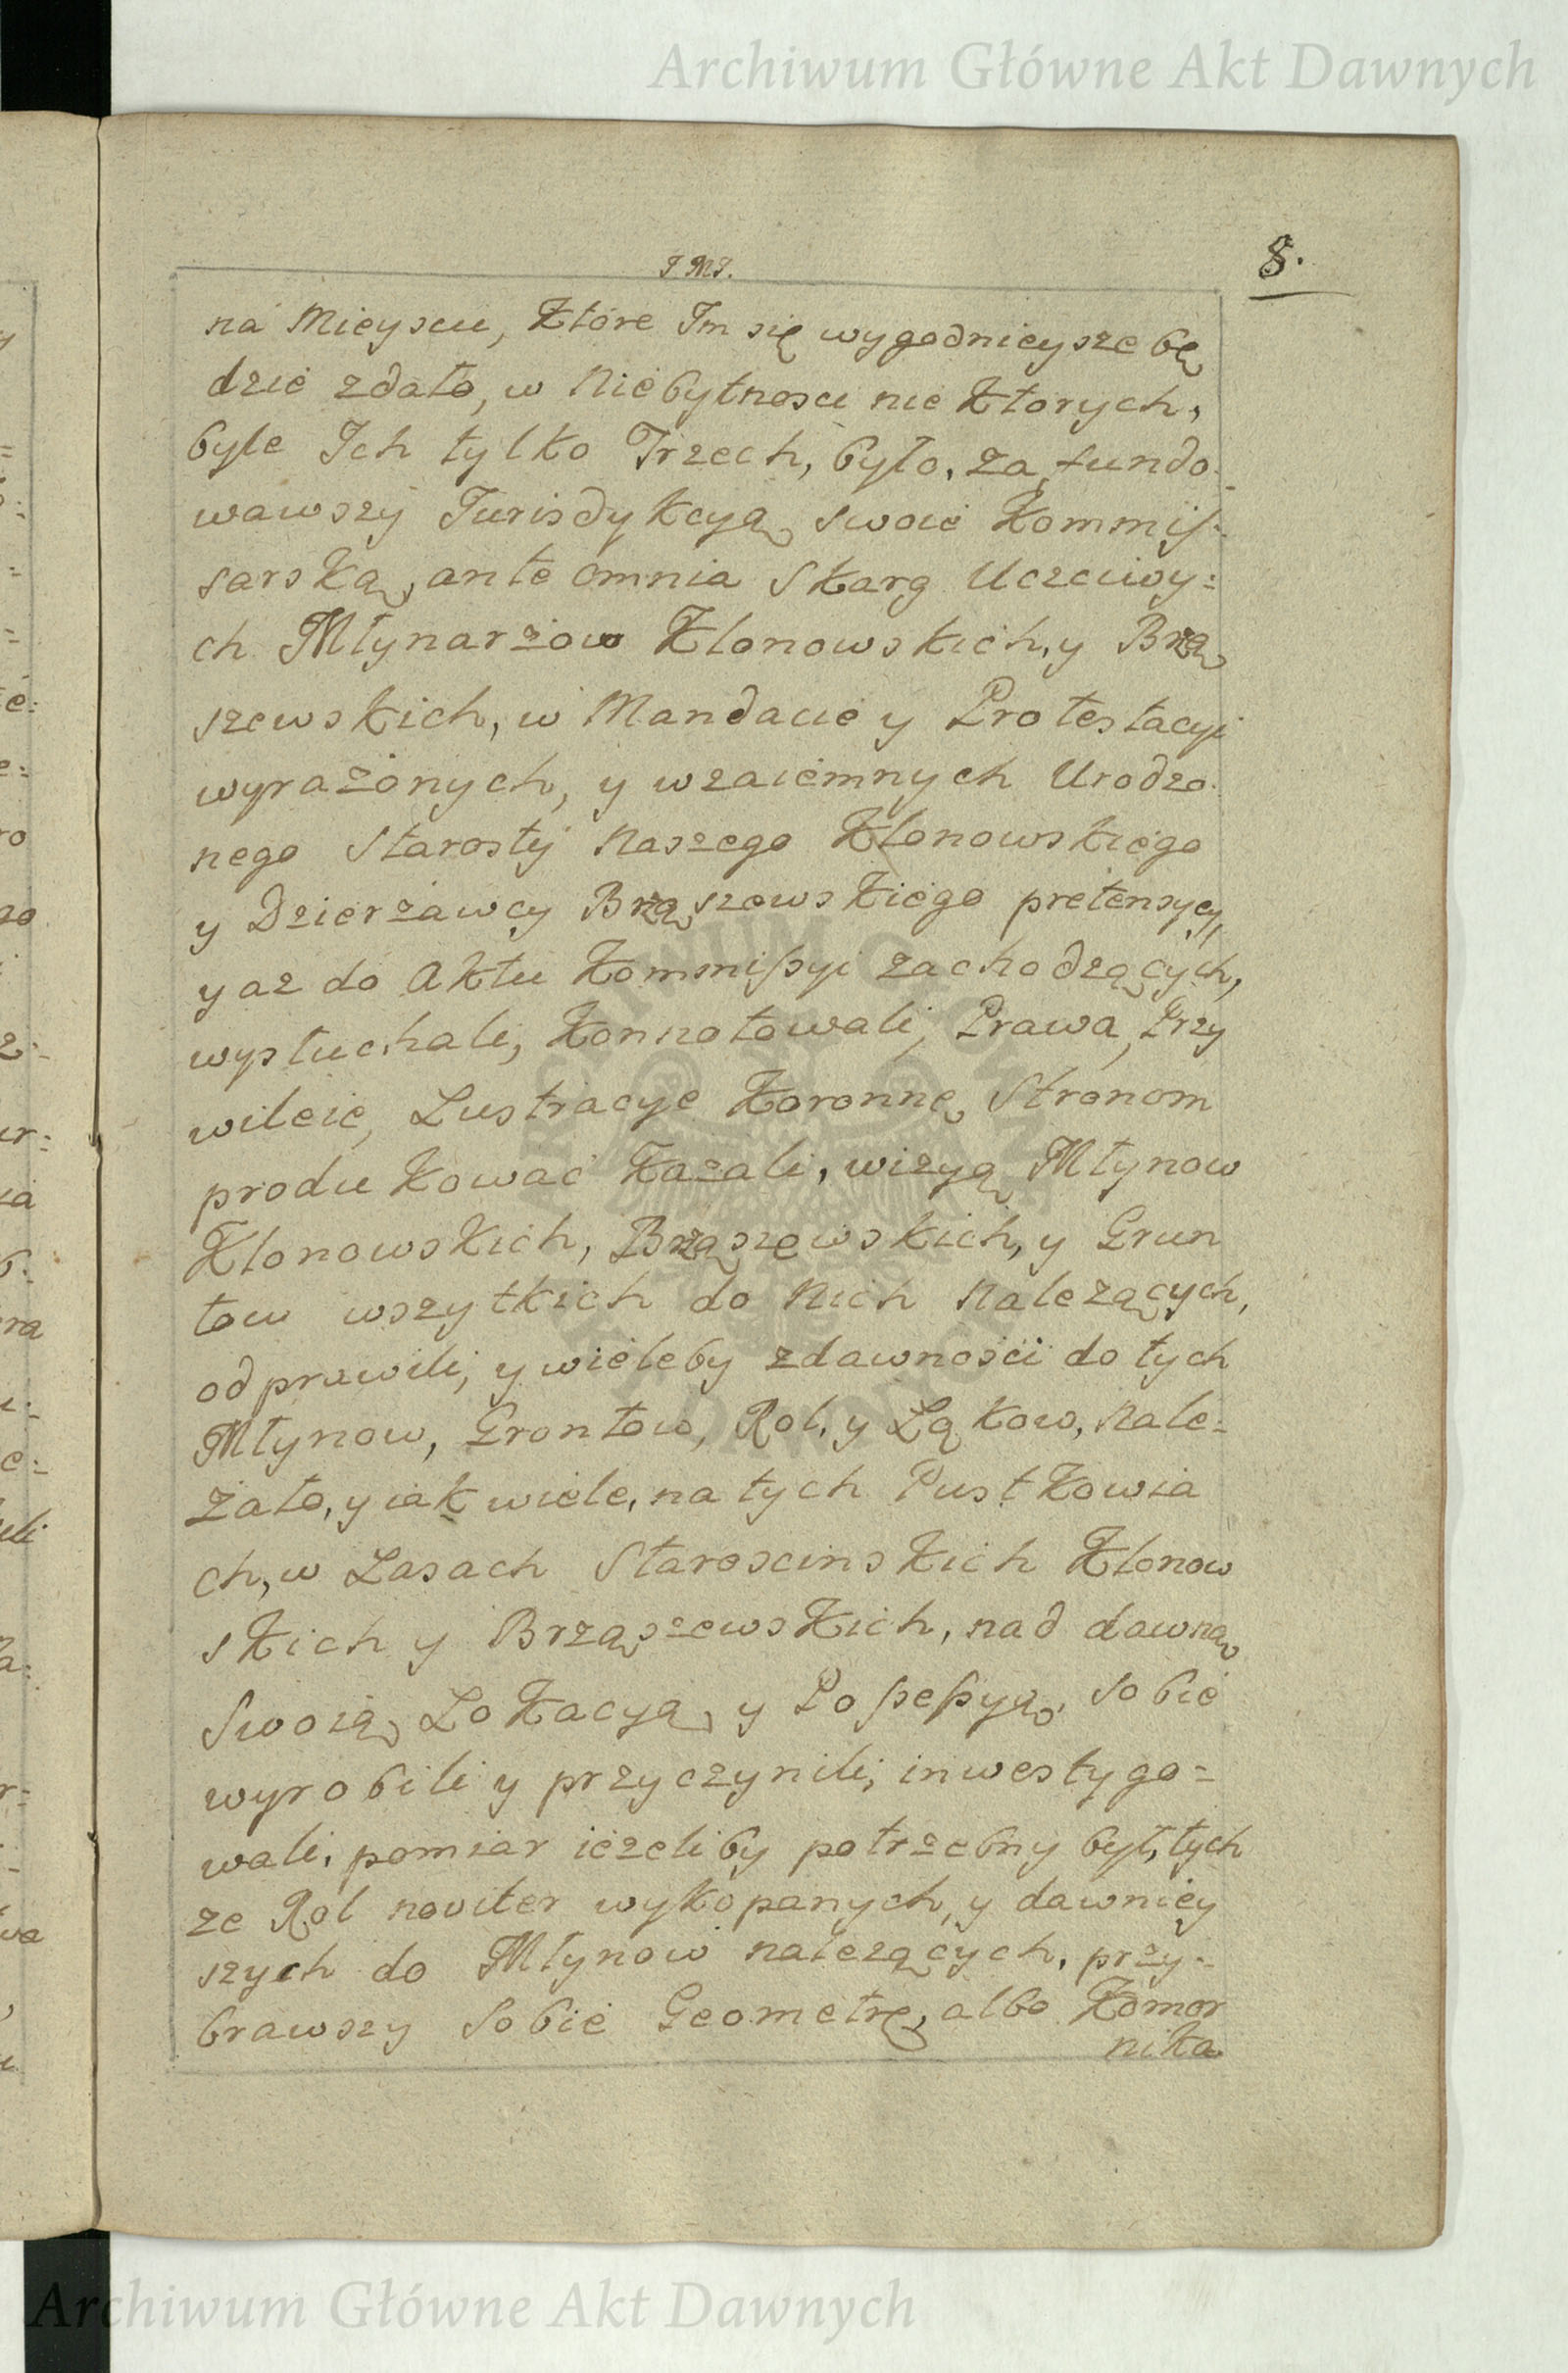 Archiwum Główne Akt Dawnych
8.
J M J.
na Mieyscu, Które Im się wygodnieysze bę
dzie zdało, w Niebytnosci nie Ktorych,
byle Ich tylko Trzech, było, za fundo-
wawszy Jurisdykcyą swoie Kommis-
sarską, ante omnia Skarg Uczciwy=
ch Młynarzow Klonowskich, y Brzą
szewskich, w Mandacie y Protestacyi
wyrażonych, y wzaiemnych Urodzo-
nego Starosty Naszego Klonowskiego
y Dzierżawcy Brząszewskiego pretensyi,
y az do Aktu Kommissyi zachodzących,
wysłuchali, Konnotowali, Prawa, Przy
wileie, Lustracye Koronnę Stronom
produkować Kazali, wizyą Młynow
Klonowskich, Brząszewskich, y Grun
tow wszytkich do Nich Nalezących,
odprawili, y wieleby zdawnoscii do tych
Młynow, Grontow, Rol, y Łąkow, Nale=
żało, y iak wiele, na tych Pustkowia
ch, w Lasach Staroscinskich Klonow
skich y Brząszewskich, nad dawną
Swoią Lokacyą y Possessyą, sobie
wyrobili y przyczynili, inwestygo=
wali, pomiar iezeliby potrzebny był, tych
ze Rol noviter wykopanych, y dawniey
szych do Młynow nalezących, przy-
brawszy Sobie Geometrę, albo Komor
nika
Archiwum Główne Akt Dawnych